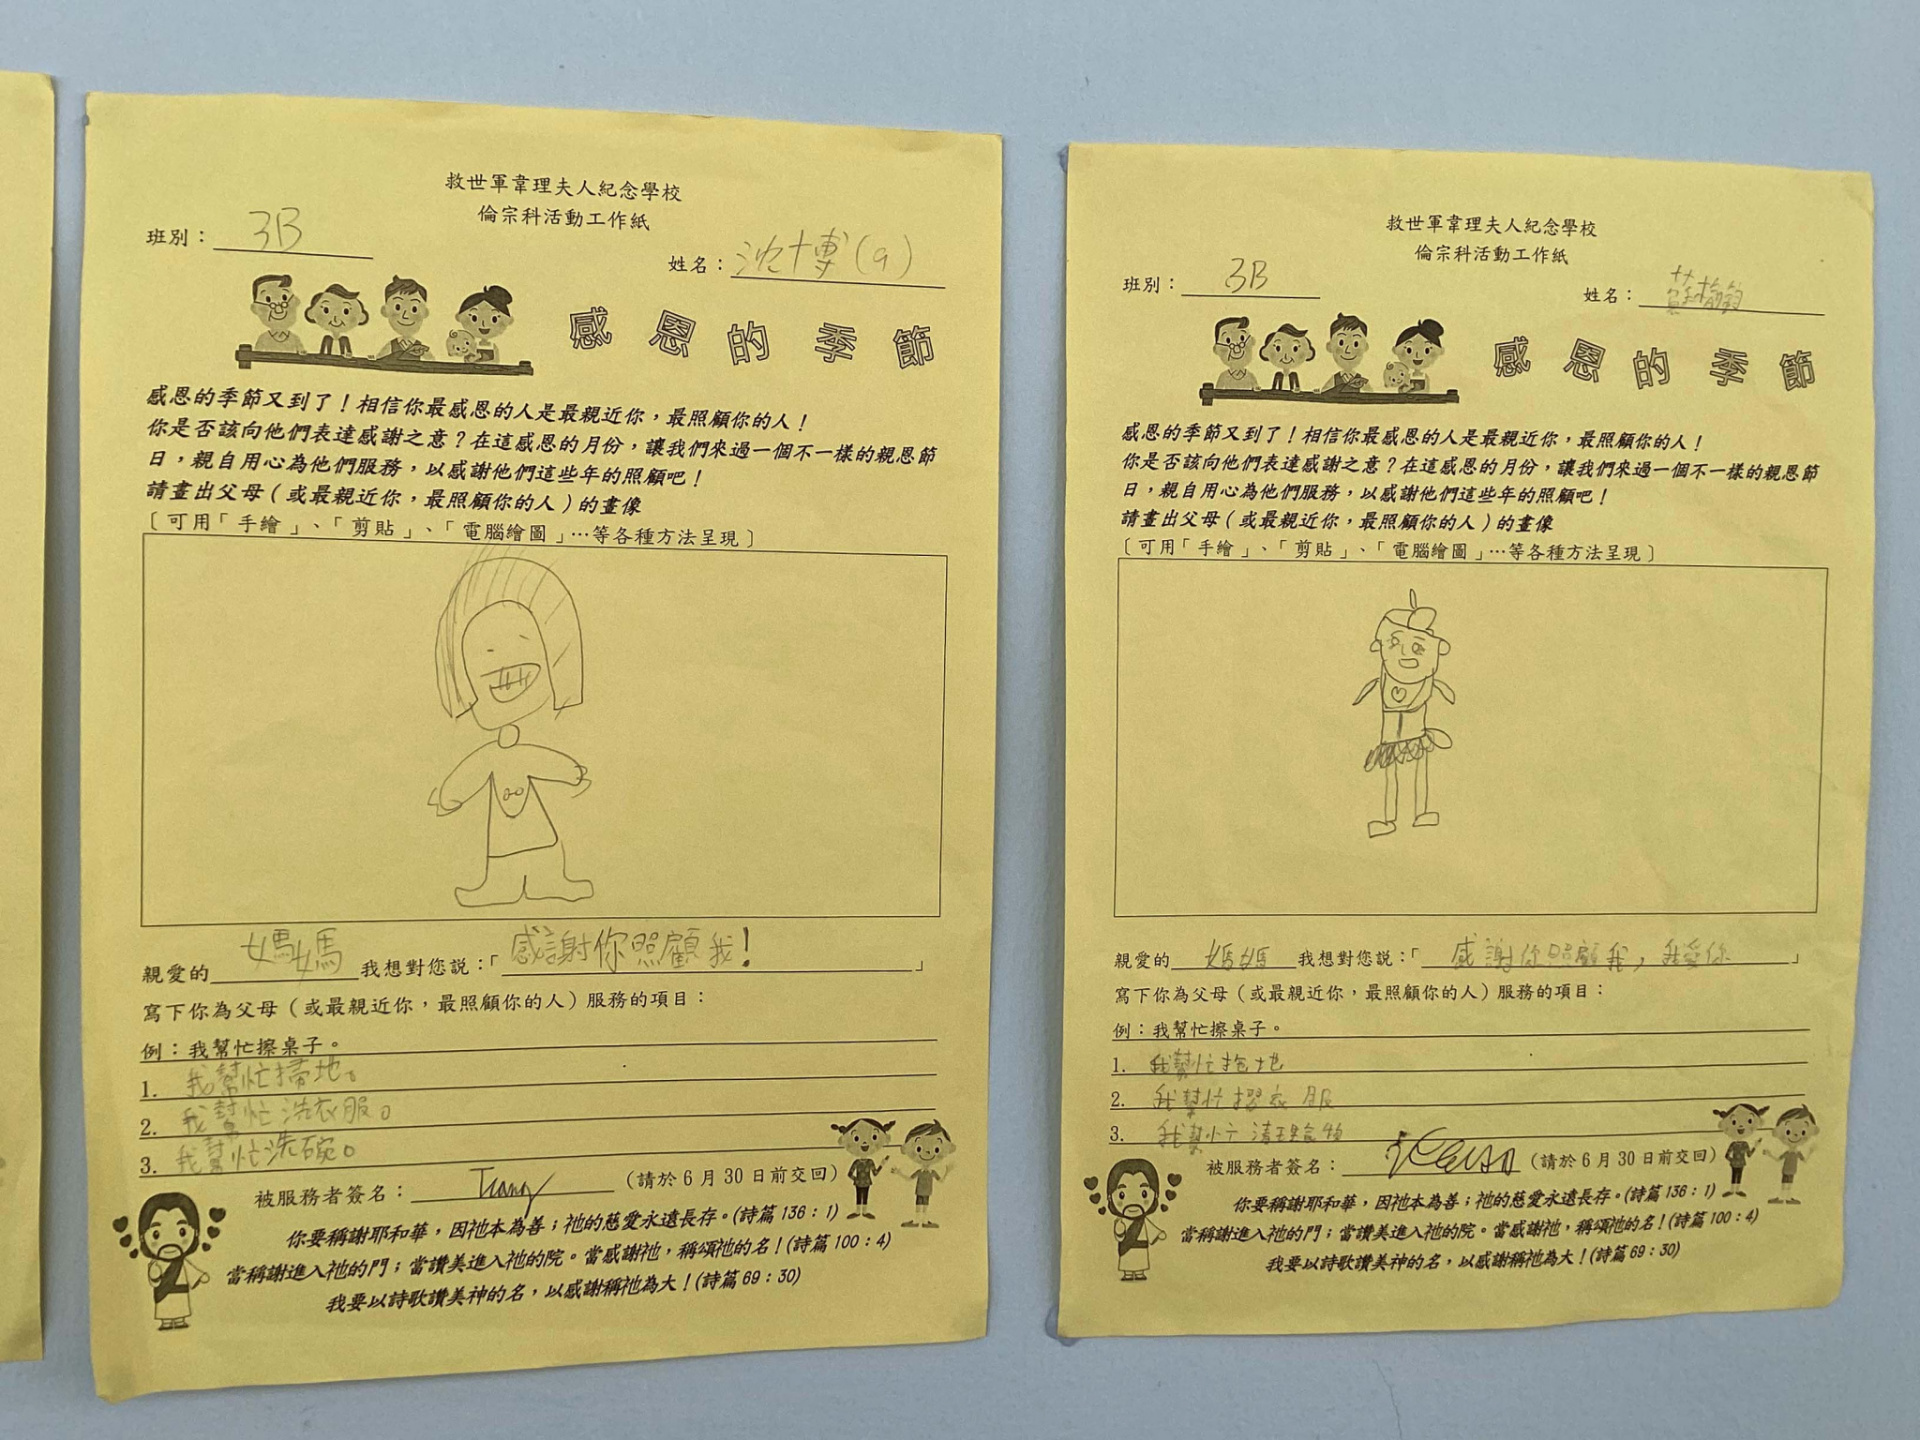 救世軍韋理夫人紀念學校
倫宗科活動工作紙
班別：3B
姓名：沈博(9)
感恩的季節
感恩的季節又到了！相信你最感恩的人是最親近你，最照顧你的人！
你是否該向他們表達感謝之意？在這感恩的月份，讓我們來過一個不一樣的親恩節
日，親自用心為他們服務，以感謝他們這些年的照顧吧！
請畫出父母（或最親近你，最照顧你的人）的畫像
〔可用「手繪」、「剪貼」、「電腦繪圖」…等各種方法呈現〕
親愛的媽媽我想對您說：「感謝你照顧我！」
寫下你為父母（或最親近你，最照顧你的人）服務的項目：
例：我幫忙擦桌子。
1. 我幫忙掃地。
2. 我幫忙洗衣服。
3. 我幫忙洗碗。
被服務者簽名：（請於6月30日前交回）
你要稱謝耶和華，因祂本為善；祂的慈愛永遠長存。(詩篇136：1)
當稱謝進入祂的門；當讚美進入祂的院。當感謝祂，稱頌祂的名！(詩篇100：4)
我要以詩歌讚美神的名，以感謝稱祂為大！(詩篇69：30)
救世軍韋理夫人紀念學校
倫宗科活動工作紙
班別：3B
姓名：蘇
感恩的季節
感恩的季節又到了！相信你最感恩的人是最親近你，最照顧你的人！
你是否該向他們表達感謝之意？在這感恩的月份，讓我們來過一個不一樣的親恩節
日，親自用心為他們服務，以感謝他們這些年的照顧吧！
請畫出父母（或最親近你，最照顧你的人）的畫像
〔可用「手繪」、「剪貼」、「電腦繪圖」…等各種方法呈現〕
親愛的媽媽我想對您說：「感謝你照顧我，我愛你」
寫下你為父母（或最親近你，最照顧你的人）服務的項目：
例：我幫忙擦桌子。
1. 我幫忙拖地
2. 我幫忙摺衣服
3. 我幫忙清理
被服務者簽名：（請於6月30日前交回）
你要稱謝耶和華，因祂本為善；祂的慈愛永遠長存。(詩篇136：1)
當稱謝進入祂的門；當讚美進入祂的院。當感謝祂，稱頌祂的名！(詩篇100：4)
我要以詩歌讚美神的名，以感謝稱祂為大！(詩篇69：30)